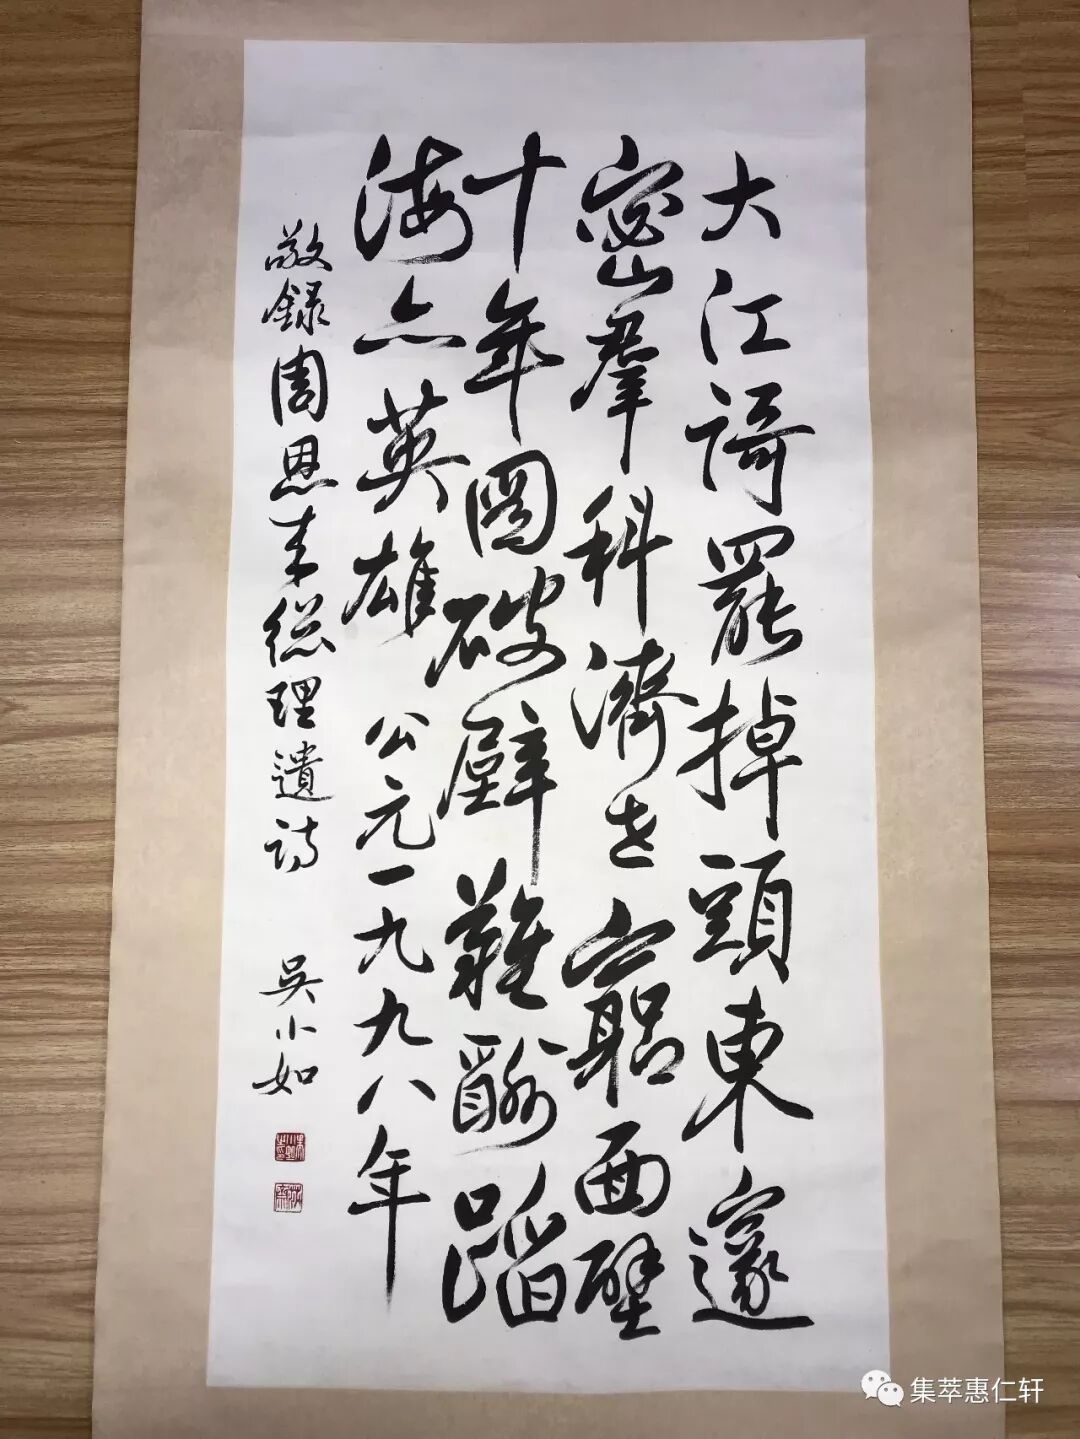 大江謌罷掉頭東邃
密羣科濟世窮面壁
十年圖破壁難酬蹈
海亦英雄 公元一九九八年
敬録周恩来總理遺詩 吳小如
集萃惠仁轩